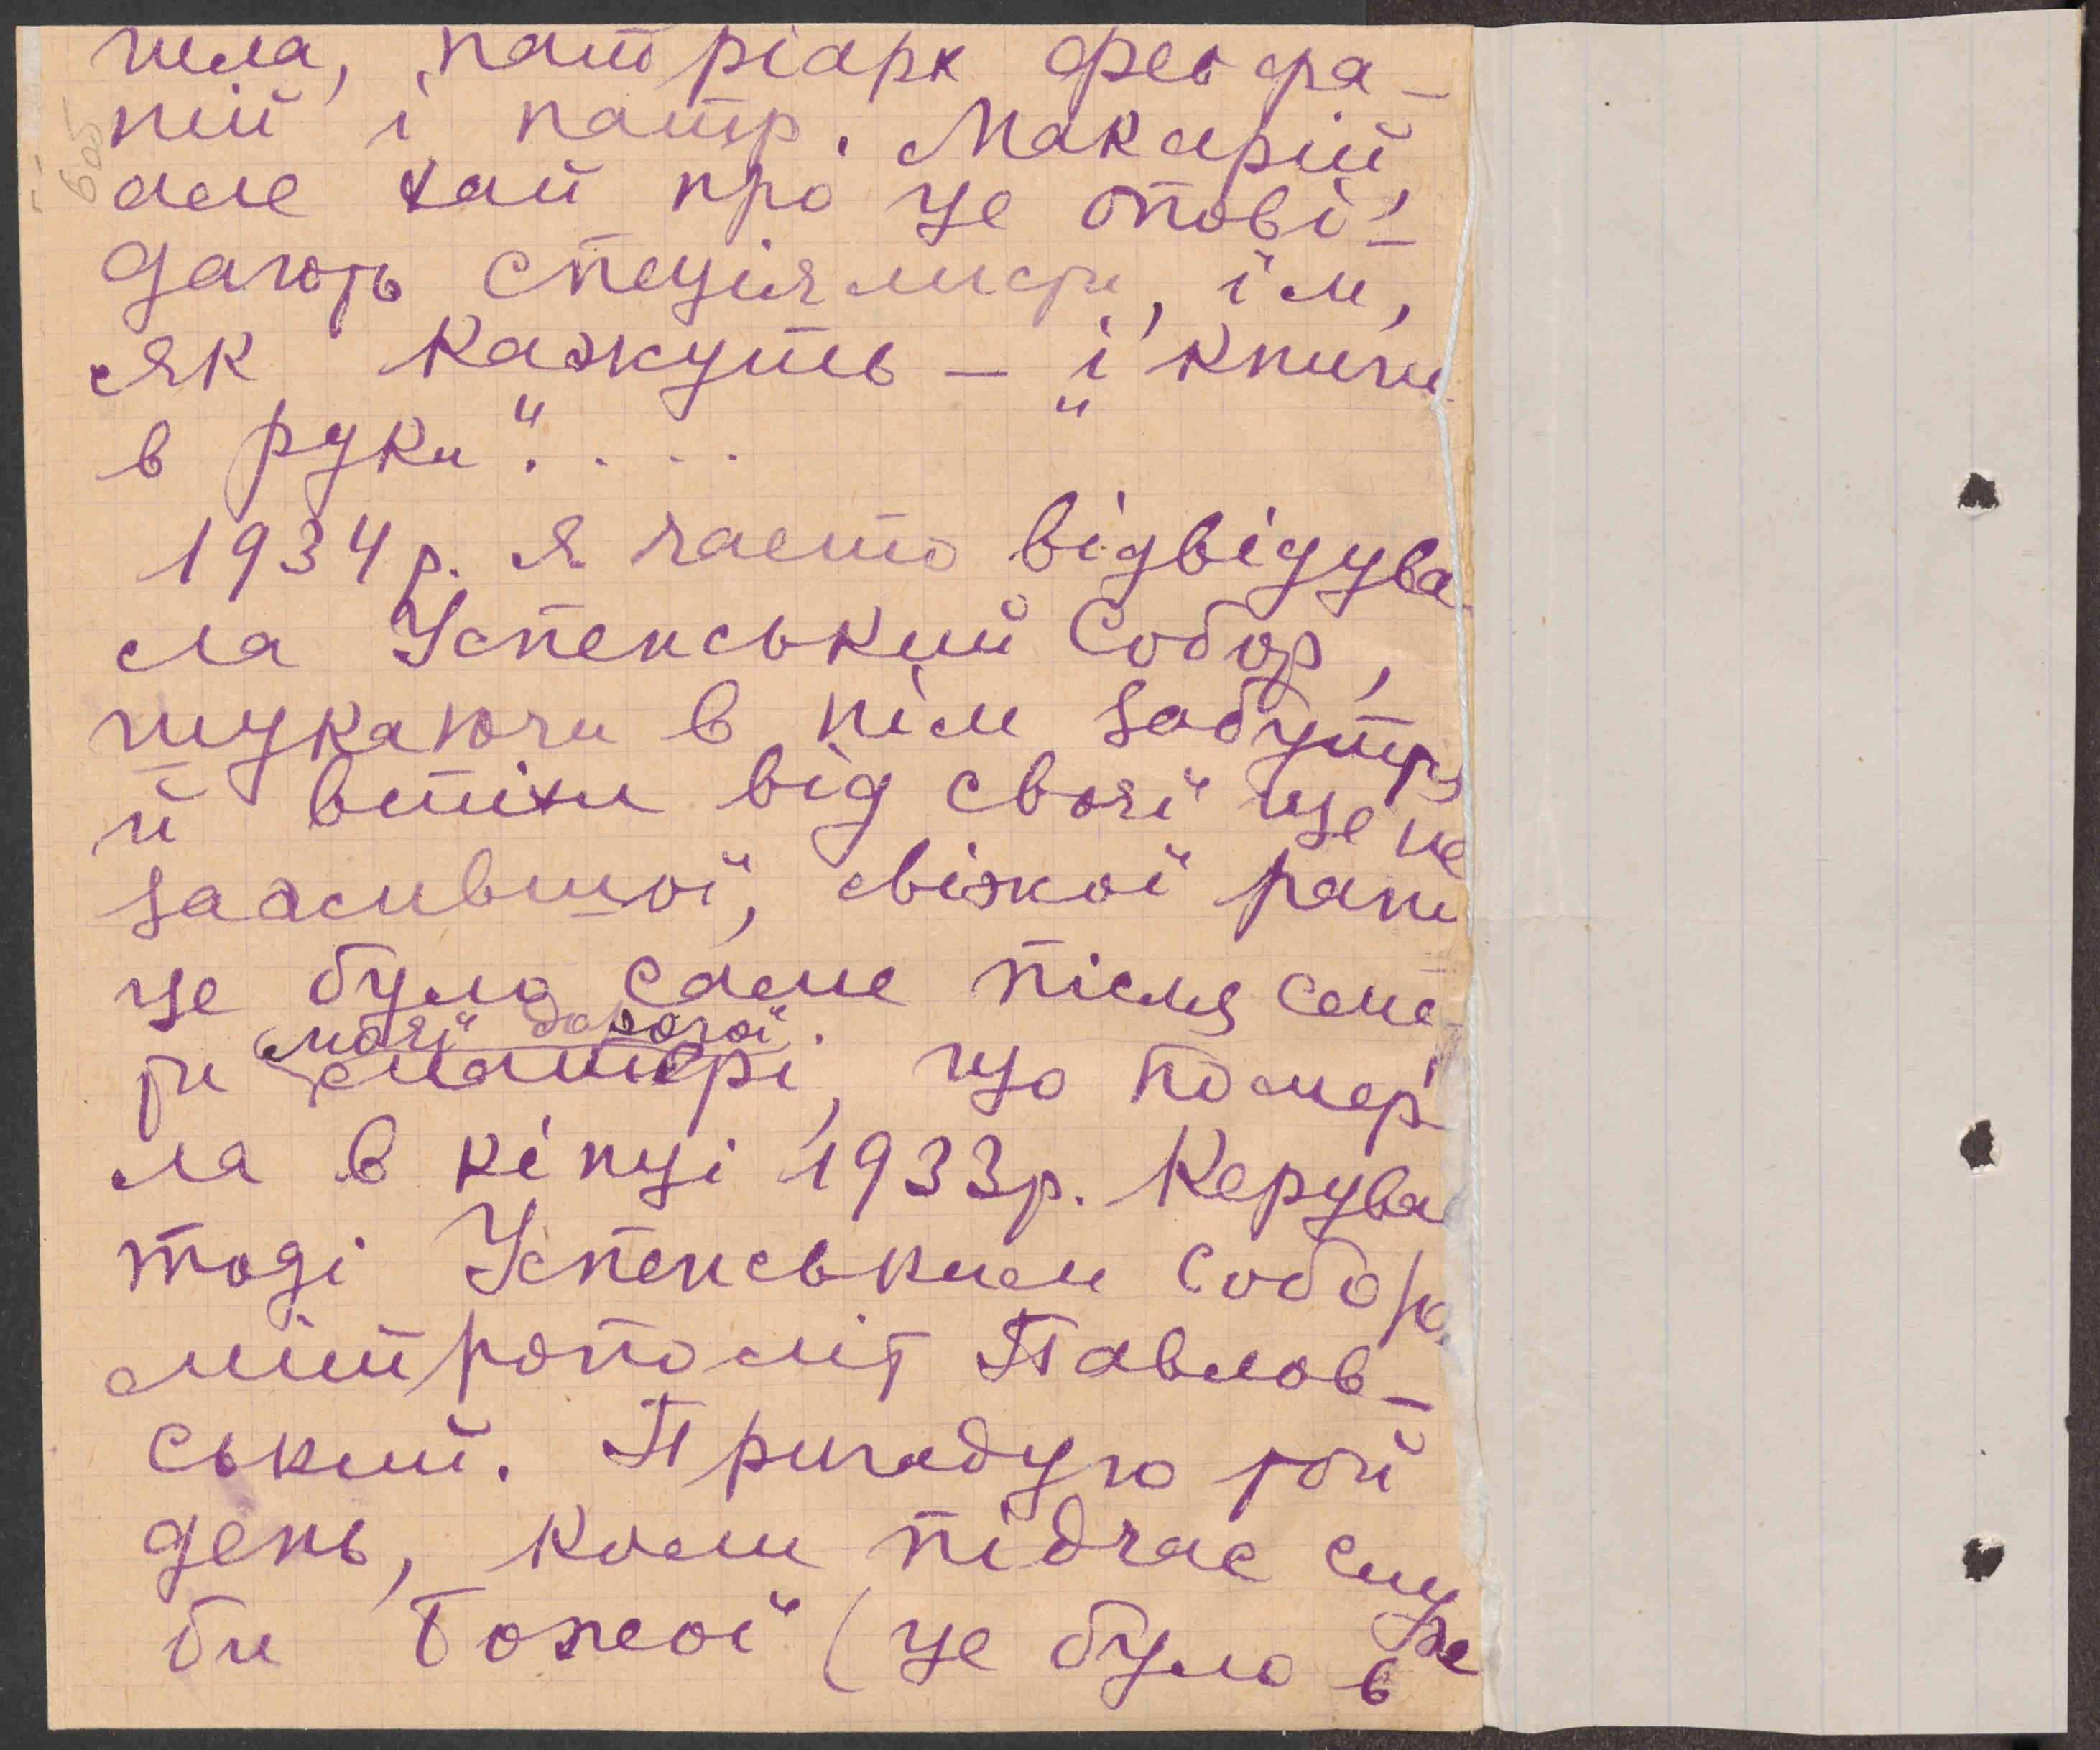 тела, патріарк Феофа-
ній і патр. Макарій,
але хай про це опові-
дають спеціялисти, їм,
як кажуть — „і книги
в руки“. . . .
1934 р. я часто відвідува
ла Успенський Собор,
шукаючи в нім забуття
й втіхи від своєї ще не
зажившої, свіжої рани
це було саме після сме
моєї дорогої
рти матері, що помер
ла в кінці 1933 р. Керува
тоді Успенським Собором
мітрополіт Павлов-
ський. Пригадую той
день, коли підчас служ
би Божої (це було в